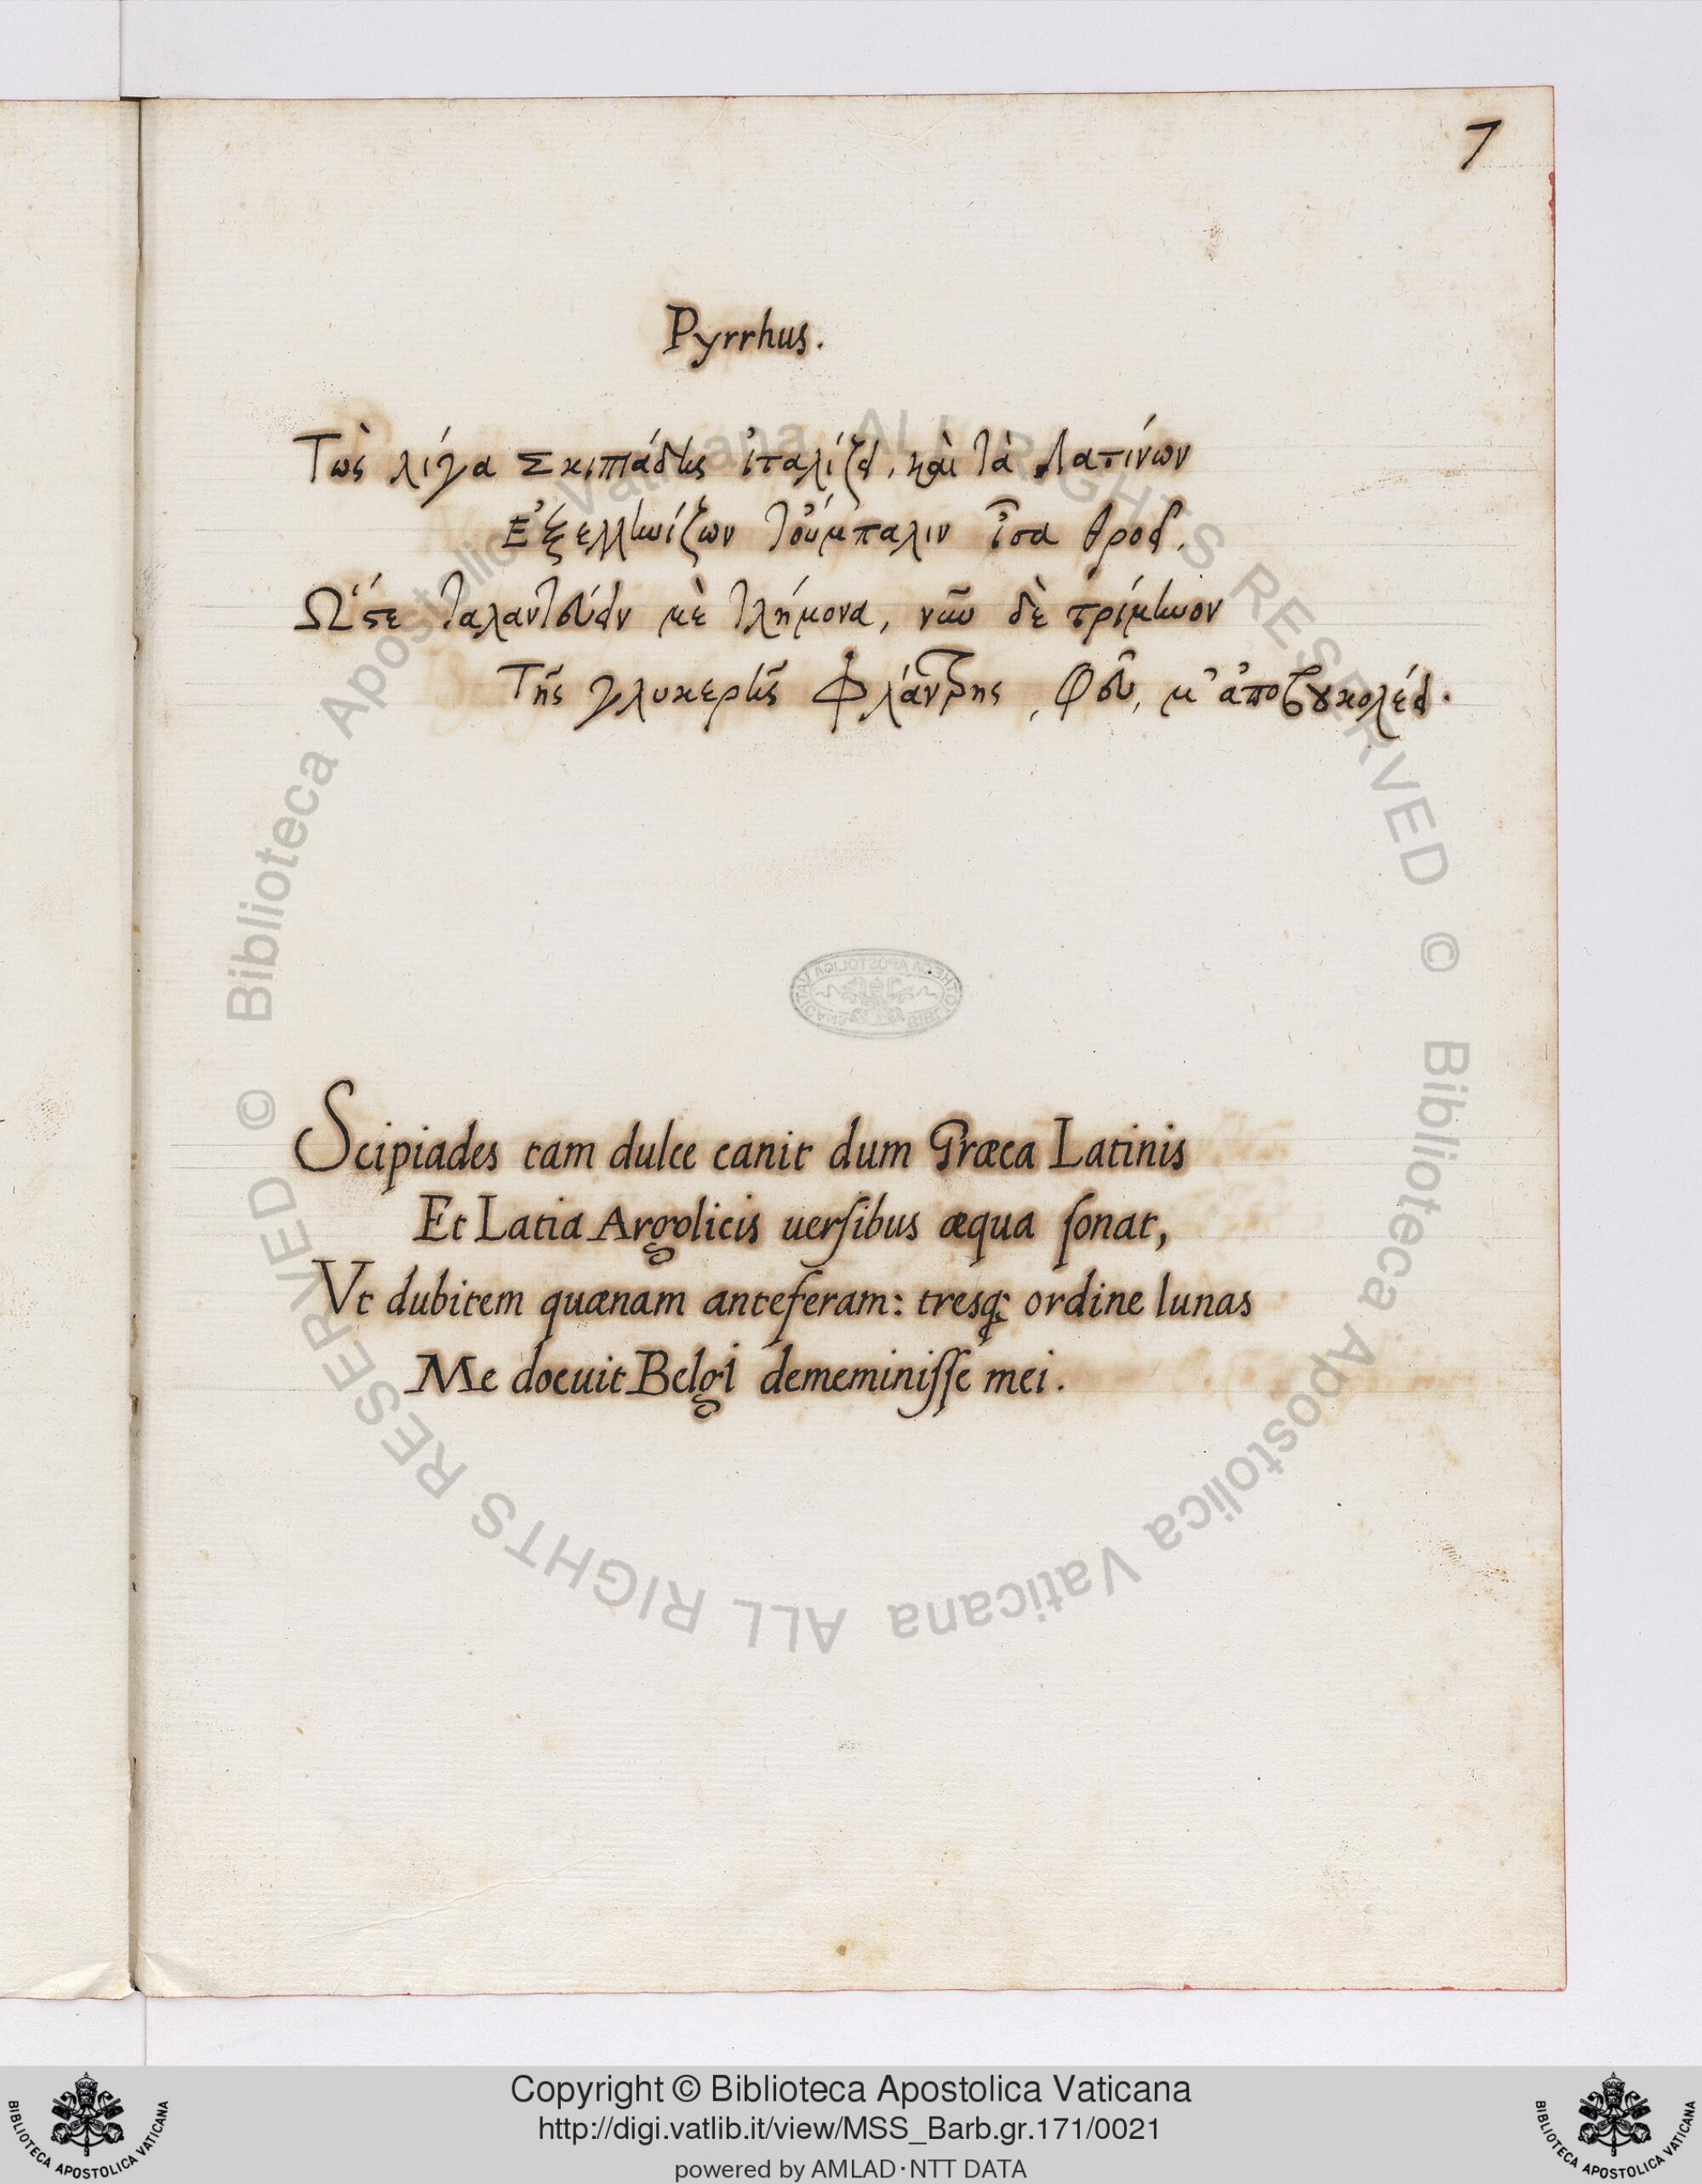 7
Pyrrhus.
Τὼς λίγα Σκιπιάδης ἰταλίζει, καὶ τὰ Λατίνων
Ἐξελληνίζων τοὔμπαλιν ἶσα θροεῖ,
Ὥστε ταλαντεύειν μὲ τλήμονα, νῦν δὲ τρίμηνον
Τῆς γλυκερῆς Φλάνδρης, φεῦ, μ' ἀποβουκολέει.
Scipiades tam dulce canit dum Græca Latinis
Et Latia Argolicis uersibus æqua sonat,
Vt dubitem quænam anteferam: tresq; ordine lunas
Me docuit Belgi dememinisse mei.
© Biblioteca Apostolica Vaticana ALL RIGHTS RESERVED © Biblioteca Apostolica Vaticana ALL RIGHTS RESERVED
Copyright © Biblioteca Apostolica Vaticana
http://digi.vatlib.it/view/MSS_Barb.gr.171/0021
powered by AMLAD·NTT DATA
BIBLIOTECA APOSTOLICA VATICANA
BIBLIOTECA APOSTOLICA VATICANA